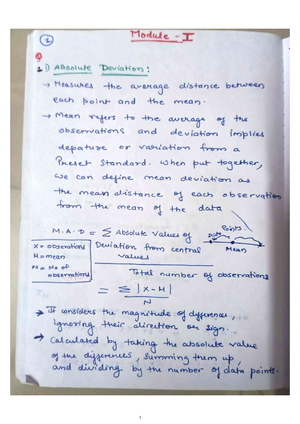 1
Module - I
Q
1 i) Absolute Deviation:
→ Measures the average distance between
each point and the mean.
→ Mean refers to the average of the
observations and deviation implies
depature or variation from a
Preset Standard. When put together,
we can define mean deviation as
the mean distance of each observation
from the mean of the data
M.A.D = Σ Absolute Values of
Deviation from central
values
Total number of observations
Points
Mean
X = observations
M = mean
N = No of
observations
= Σ|X-M|
N
→ It considers the magnitude of difference,
ignoring their direction or sign.
→ Calculated by taking the absolute value
of the differences, summing them up,
and dividing by the number of data points.
1